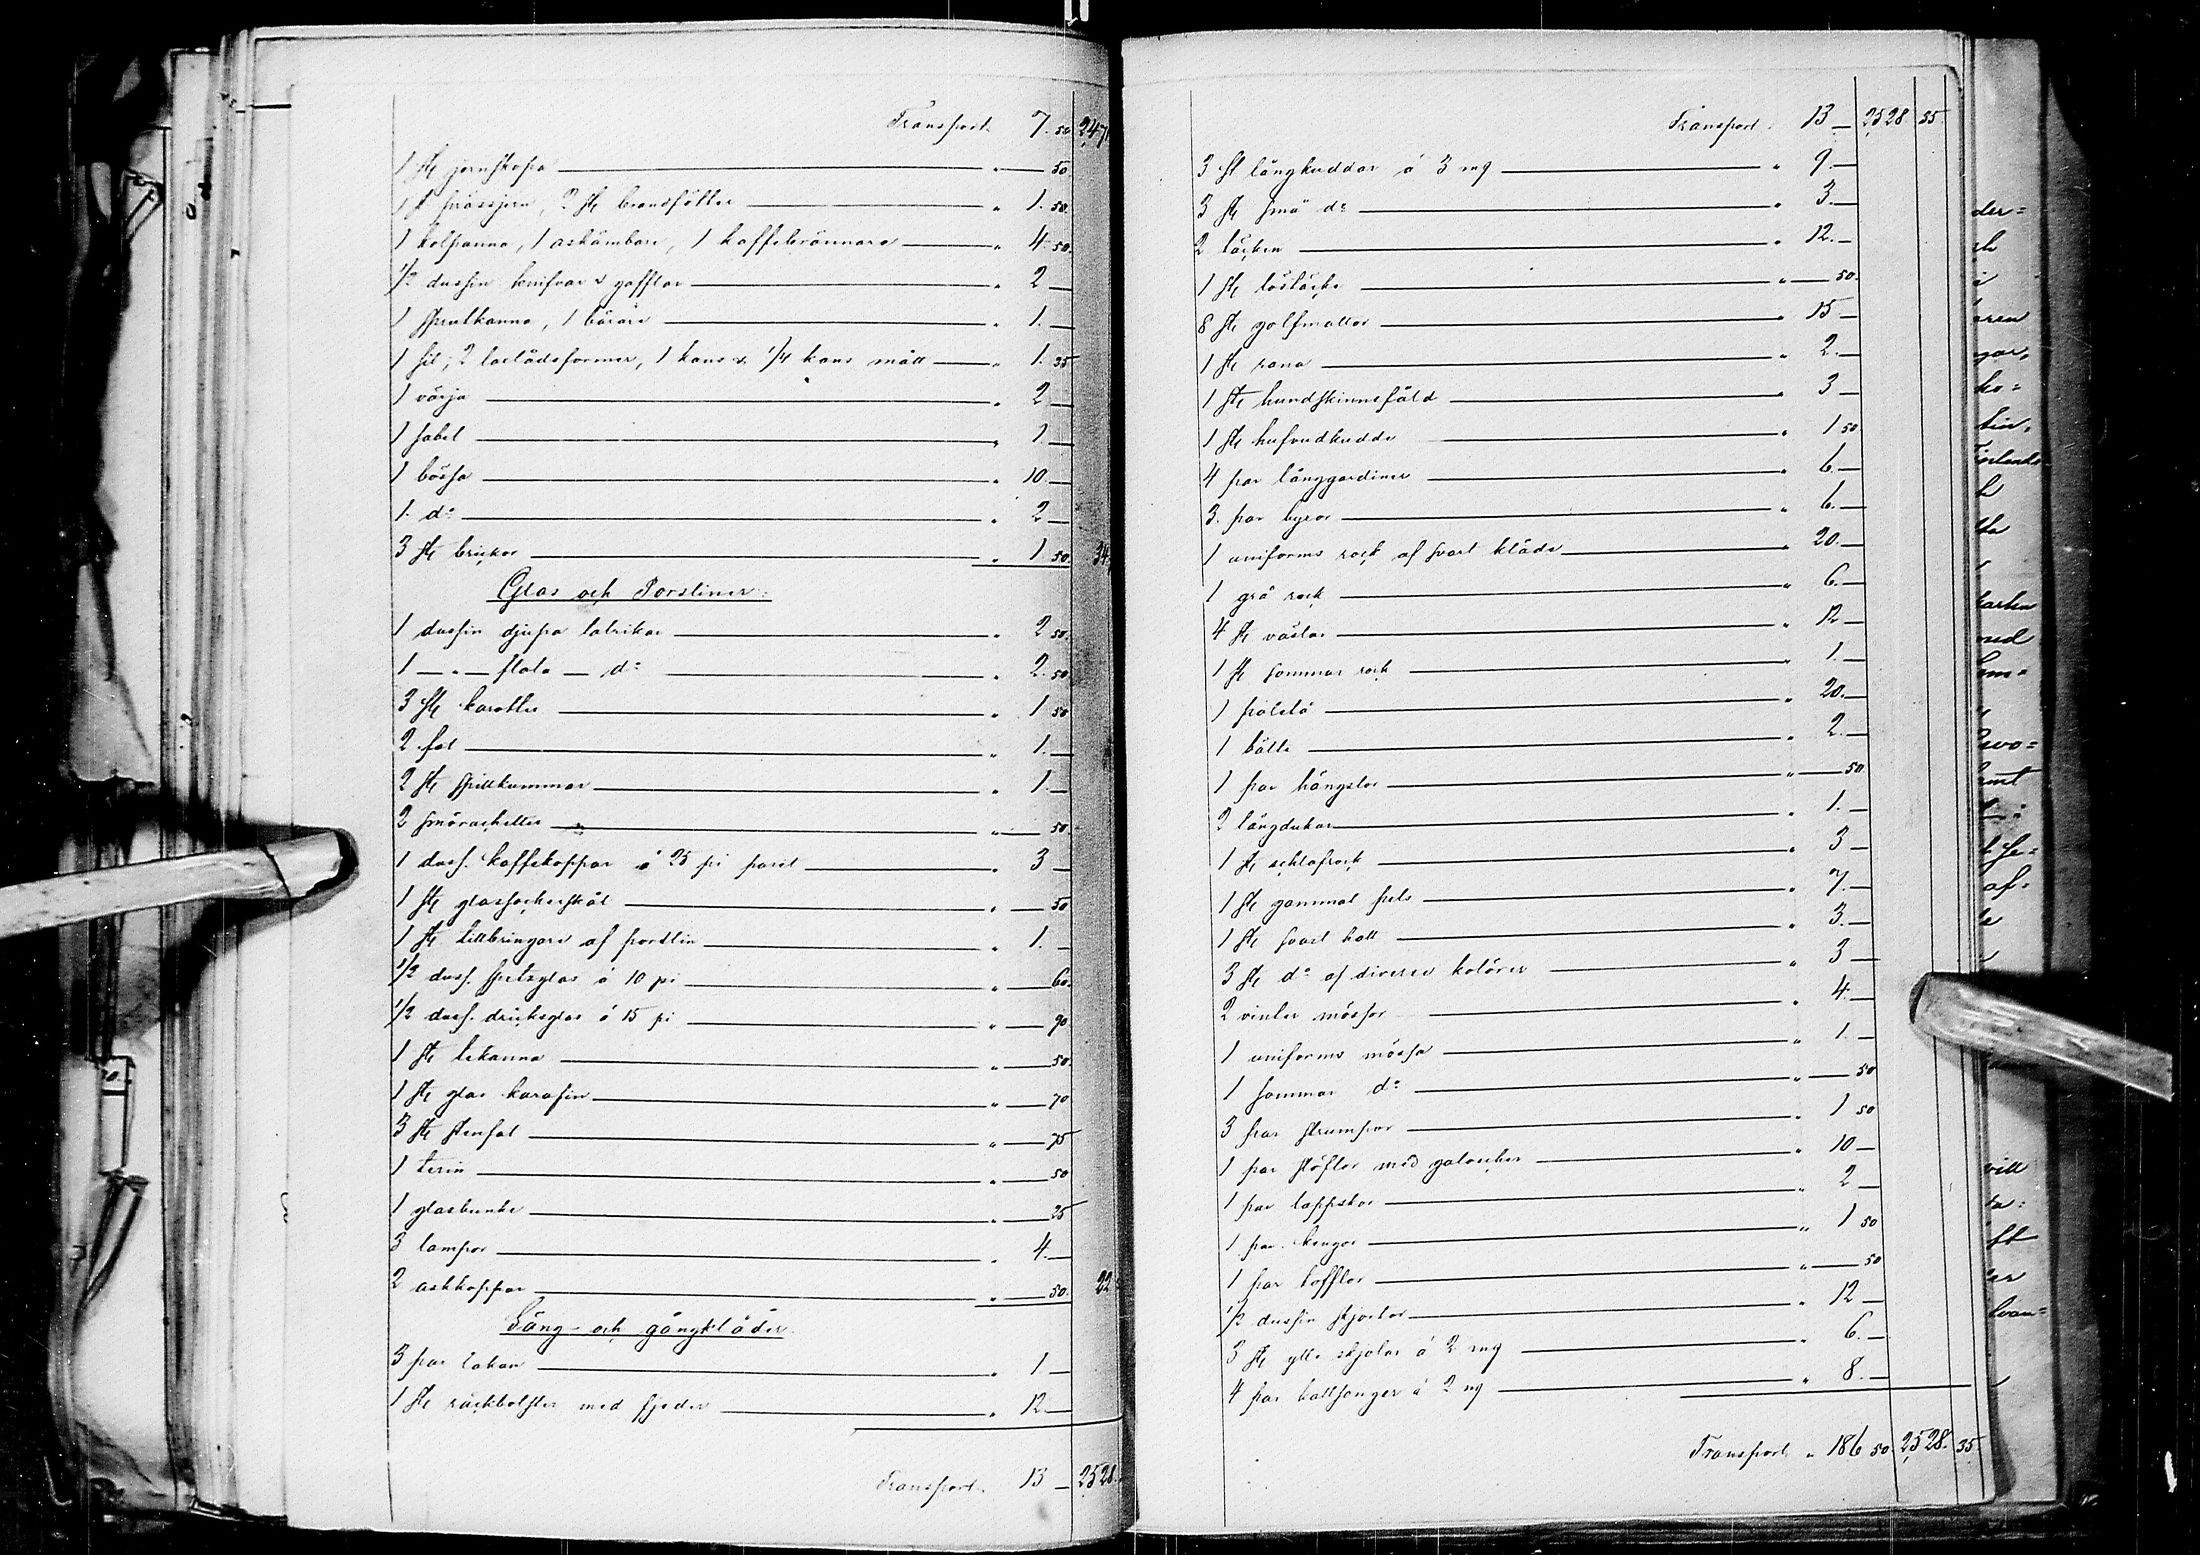 Transport. 7. 50 247
1 st jernskopa " 50
1 st strässjern, 2 st brandsöttar " 1. 50.
1 kolpanna, 1 askämbare, 1 kaffebrännare " 4 50.
1/2 dussin knifvar & gafflar " 2 —
1 sprutkanna, 1 bärare " 1. —
1 sil, 2 lacklådsformar, 1 kans & 1/4 kans mått " 1. 35
1 värja " 2 —
1 sabel " 1 —
1 bössa " 10 —
1. d:o " 2 —
3 st brickor " 1 50. 34
Glas och Porsliner.
1 dussin djupa talrikar " 2 50.
1 — " — flata — d:o " 2. 50
3 st karotter " 1 50
2 fat " 1. —
2 st spillkummar " 1. —
2 smörasketter " 50.
1 duss. kaffekoppar á 25 pi paret " 3 —
1 st glassockerskål " 50
1 st tillbringare af porslin " 1. —
1/2 duss. spetsglas á 10 pi " 60.
1/2 duss. dricksglas á 15 pi " 90
1 st tekanna " 50.
1 st glas karafin " 70
3 st stenfat " 75
1 terin " 50
1 glasbunke " 25
3 lampor " 4. —
2 askkoppar " 50. 22
Säng- och gångkläder.
3 par lakan " 1 —
1 st räckbolster med fjeder " 12 —
Transport. 13 — 2528.
Transport. 13 — 2528 35
3 st långkuddar á 3 mg " 9. —
3 st små d:o " 3. —
2 täcken " 12. —
1 st löstäcke " 50.
8 st golfmattor " 15 —
1 st rana " 2. —
1 st hundskinnsfäld " 3 —
1 st hufvudkudde " 1 50
4 par långgardiner " 6. —
3. par byxor " 6. —
1 uniforms rock af svart kläde " 20. —
1 grå rock " 6. —
4 st västar " 12 —
1 st sommar rock " 1. —
1 paletå " 20. —
1 bälte " 2. —
1 par hängslor " 50
2 långdukar " 1. —
1 st schlafrock " 3 —
1 st gammal pels " 7. —
1 st svart hatt " 3. —
3 st d:o af diverse kolörer " 3 —
2 vinter mössor " 4. —
1 uniforms mössa " 1. —
1 sommar d:o " 50
3 par strumpor " 1 50
1 par stöflar med galoscher " 10 —
1 par lappskor " 2 —
1 par kengor " 1 50
1 par tofflor " 50
1/2 dussin skjortor " 12 —
3 st ylle skjolar á 2 mg " 6. —
4 par kallsonger á 2 mg " 8. —
Transport. " 186 50. 2528. 35.